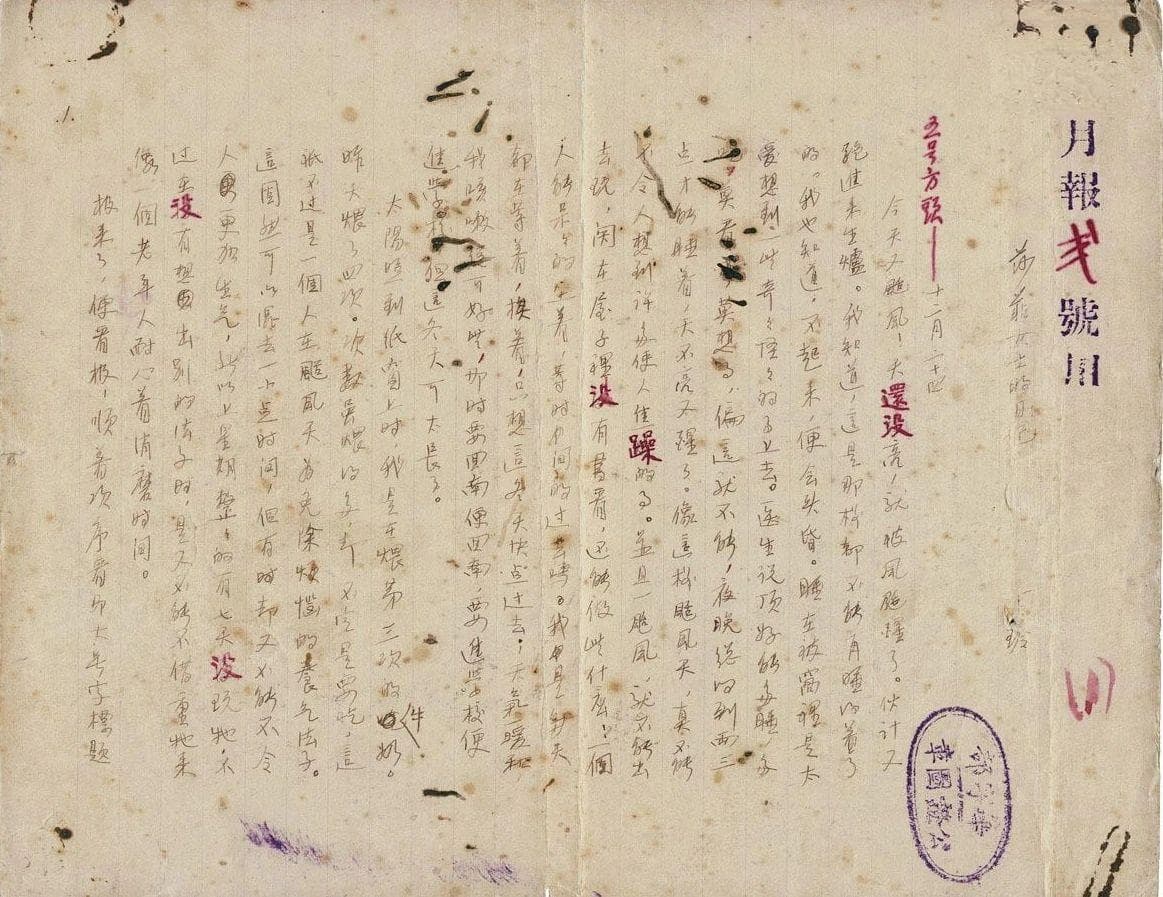 月報弍號用
莎菲女士的日記
丁玲
(1)
五号方頭——
十二月二十四
今天又颳風!天還没亮,就被風颳醒了。伙計又
跑進来生爐。我知道,這是那樣都不能再睡的着了
的。我也知道,不起来,便會头昏。睡在被窩裡是太
愛想到一些奇々怪々的事上去。医生说顶好能多睡,多
吃,莫看書,莫想事,偏這就不能,夜晚總的到两三
点才能睡着,天不亮又醒了。像這樣颳風天,真不能
不令人想到許多使人焦躁的事。並且一颳風,就不能出
去玩,関在屋子裡没有書看,還能做些什麽!一個
人能呆々的坐着,等时间的过去嗎?我是每天
都在等着,挨着,只想這冬天快点过去;天氣暖和
我咳嗽總可好些,那时要回南便回南,要進学校便
進学校,但這冬天可太長了。
太陽照到纸窗上时,我是在煨第三次的牛奶。
昨天煨了四次。次数虽煨得多,却不定是要吃,這
祇不过是一個人在颳風天为免除煩惱的養气法子。
這固然可以混去一小点时间,但有时却又不能不令
人更加生气,所以上星期整々的有七天没玩牠,不
过在没有想出别的法子时,是又不能不借重牠来
像一個老年人耐心着消磨时间。
报来了,便看报,顺着次序看那大号字標題
1.